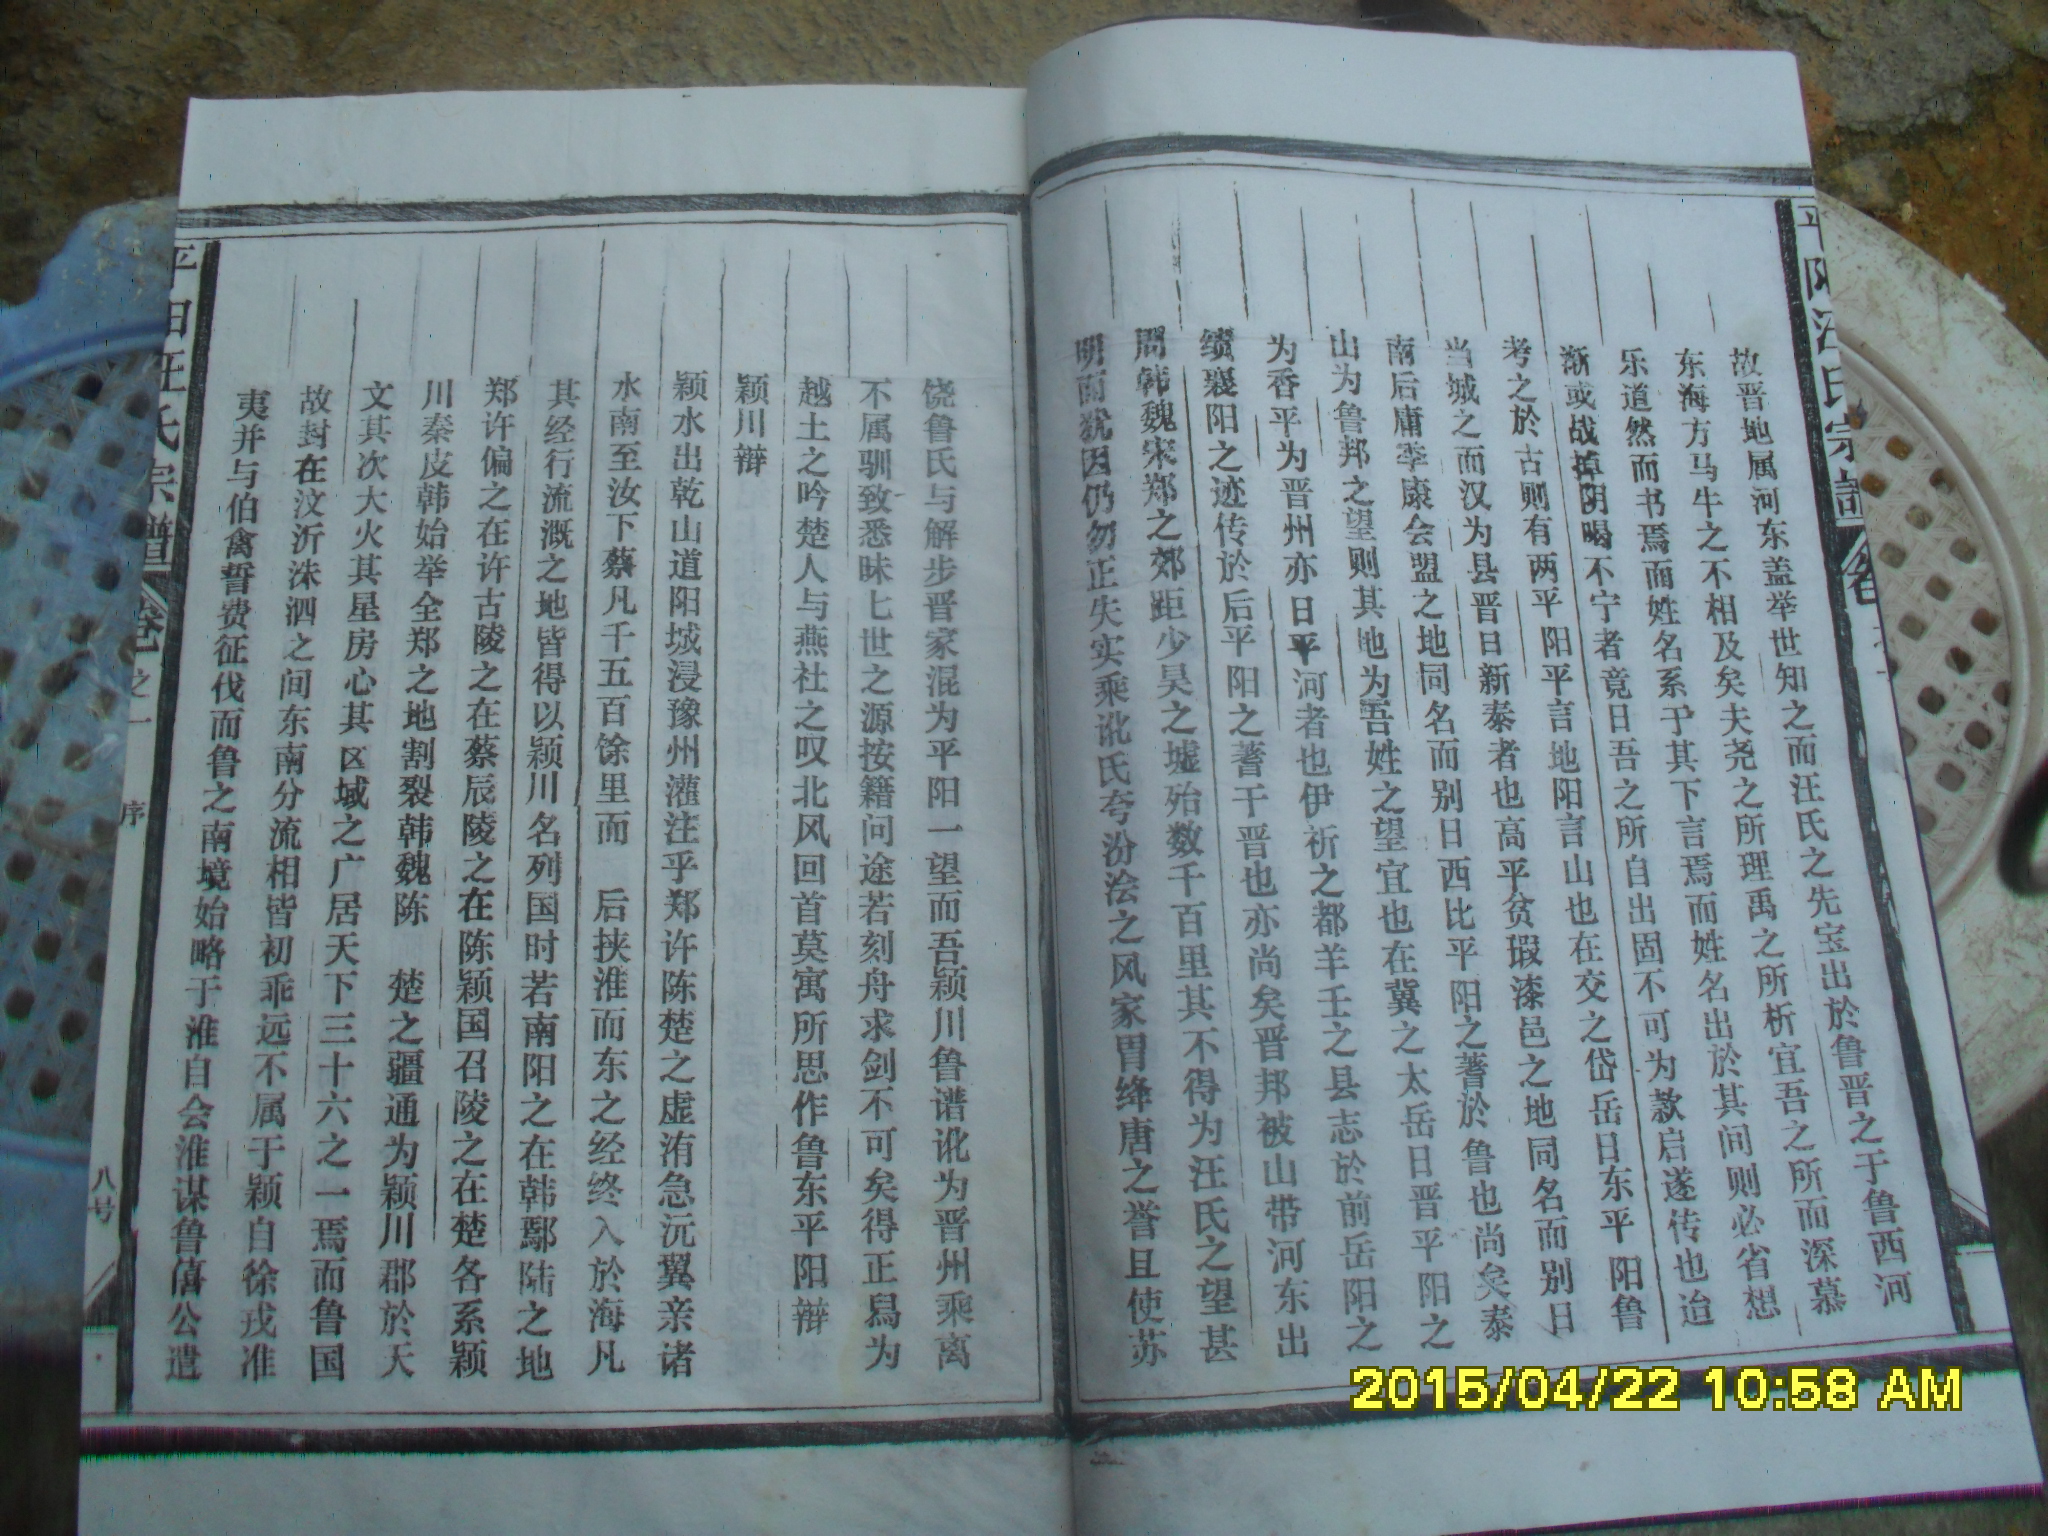 故晋地属河东盖举世知之而汪氏之先宝出於鲁晋之于鲁西河
东海方马牛之不相及矣夫尧之所理禹之所析宜吾之所而深慕
乐道然而书焉而姓名系于其下言焉而姓名出於其间则必省想
渐或战掉阴喝不宁者竟日吾之所自出固不可为款启遂传也迨
考之於古则有两平阳平言地阳言山也在交之岱岳日东平阳鲁
当城之而汉为县晋日新泰者也高平贫瑕漆邑之地同名而别日
南后庸季康会盟之地同名而别日西比平阳之著於鲁也尚矣泰
山为鲁邦之望则其地为吾姓之望宜也在冀之太岳日晋平阳之
为香平为晋州亦日平河者也伊祈之都羊壬之县志於前岳阳之
绩襄阳之迹传於后平阳之著干晋也亦尚矣晋邦被山带河东出
周韩魏宋郑之郊距少昊之墟殆数千百里其不得为汪氏之望甚
明而犹因仍勿正失实乘讹氏夸汾浍之风家胃绛唐之誉且使苏
饶鲁氏与解步晋家混为平阳一望而吾颍川鲁谱讹为晋州乘离
不属驯致悉昧七世之源按籍问途若刻舟求剑不可矣得正舄为
越土之吟楚人与燕社之叹北风回首莫寓所思作鲁东平阳辩
颖川辩
颖水出乾山道阳城浸豫州灌注乎郑许陈楚之虚洧急沅翼亲诸
水南至汝下蔡凡千五百馀里而 后挟淮而东之经终入於海凡
其经行流溉之地皆得以颖川名列国时若南阳之在韩鄢陆之地
郑许偏之在许古陵之在蔡辰陵之在陈颖国召陵之在楚各系颖
川秦皮韩始举全郑之地割裂韩魏陈 楚之疆通为颖川郡於天
文其次大火其星房心其区域之广居天下三十六之一焉而鲁国
故封在汶沂洙泗之间东南分流相皆初乖远不属于颖自徐戎淮
夷并与伯禽誓费征伐而鲁之南境始略于淮自会淮谋鲁僖公遣
平阳汪氏宗譜
卷之一
序
八号
平阳汪氏宗譜
2015/04/22 10:58 AM